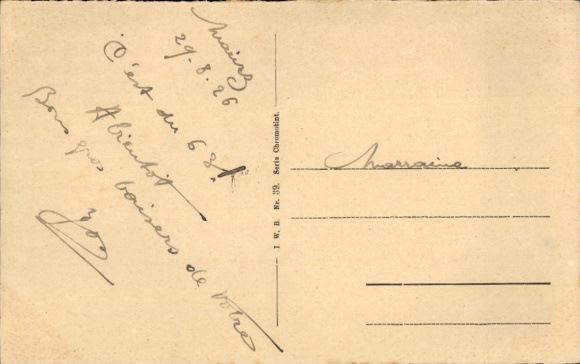 29.8.26
C'est du 6 8
A bientôt
Bons gros baisers de votre
Jos
I. W. B. Nr. 39. Serie Chromotint.
Marraine